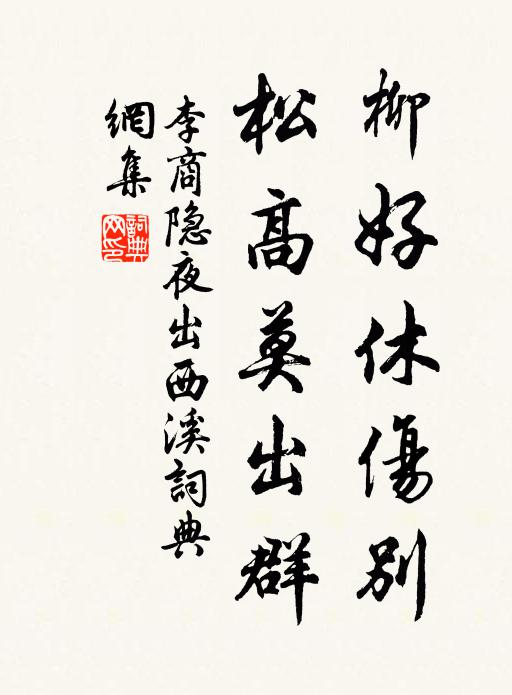 柳好休傷别
松高莫出群
李商隐夜出西溪詞典
網集
詞典
网印